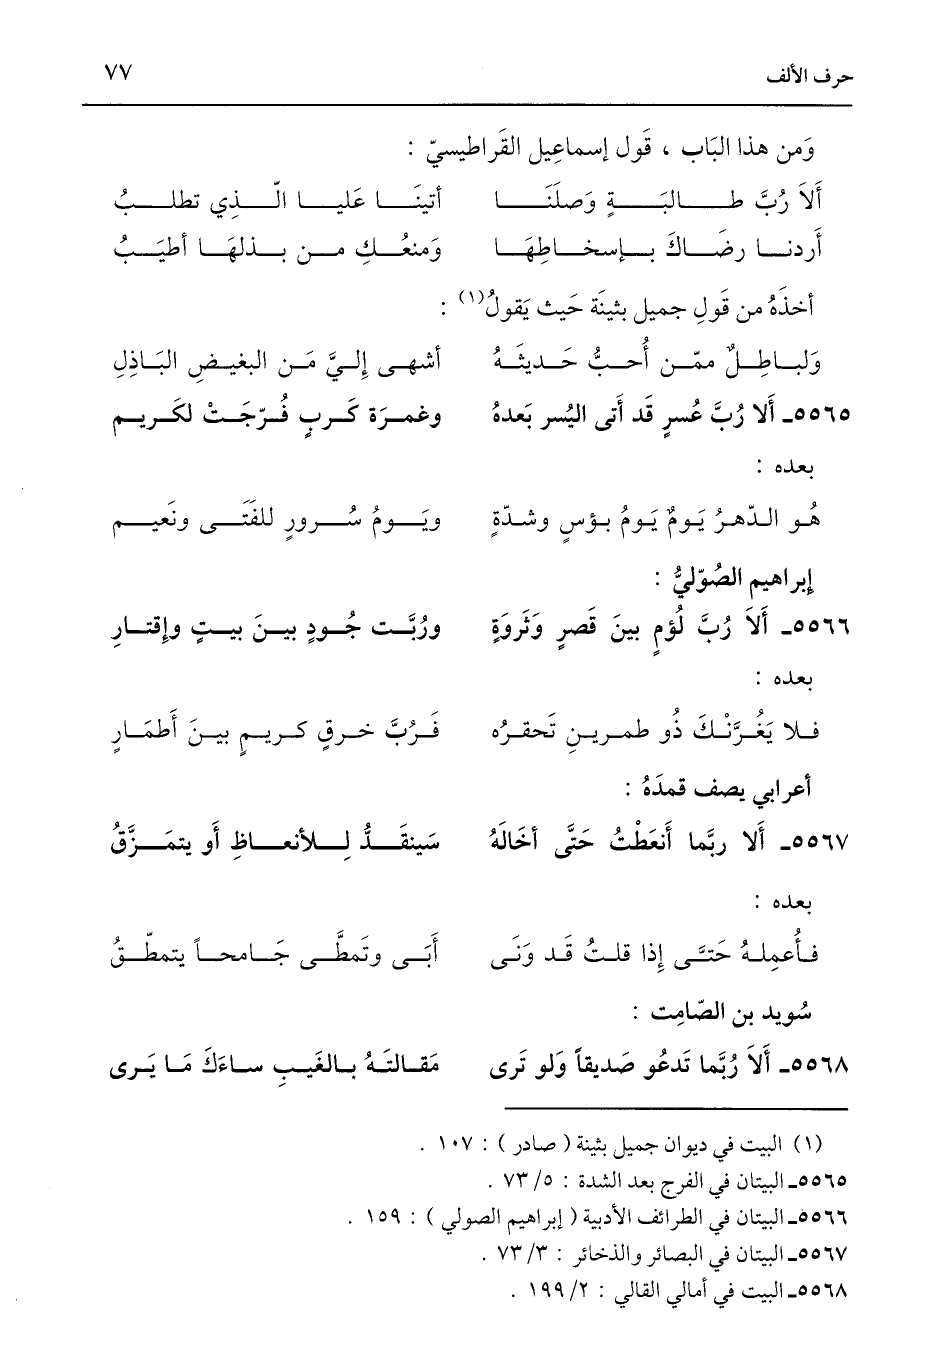 حرف الألف ٧٧
وَمن هذا البَاب ، قَول إسماعِيل القَراطيسيّ :
أَلاَ رُبَّ طالبَةٍ وَصلَنَا أتينَا عَليا الّذي تطلبُ
أردنا رضَاكَ بإسخاطِهَا وَمنعُكِ من بذلهَا أطيَبُ
أخذَهُ من قَولِ جميل بثينَة حَيث يَقولُ(١) :
وَلباطِلٌ ممّن أُحبُّ حَديثَهُ أشهى إليَّ مَن البغيضِ البَاذِلِ
٥٥٦٥ـ ألا رُبَّ عُسرٍ قَد أَتى اليُسر بَعدهُ وغمرَة كَربٍ فُرّجَتْ لكَريم
بعده :
هُو الدّهرُ يَومٌ يَومُ بؤسٍ وشدّةٍ ويَومُ سُرورٍ للفَتَى ونَعيم
إبراهيم الصُوّليُّ :
٥٥٦٦ـ أَلاَ رُبَّ لُؤمٍ بينَ قَصرٍ وَثروَةٍ ورُبَّت جُودٍ بينَ بيتٍ وإقتارِ
بعده :
فلا يَغُرَّنْكَ ذُو طمرينِ تَحقرُه فَرُبَّ خرقٍ كريمٍ بينَ أَطمَارٍ
أعرابي يصف قمدَهُ :
٥٥٦٧ـ أَلا ربَّما أَنعَظْتُ حَتَّى أخَالَهُ سَينقَدُّ لِلأنعاظِ أَو يتمَزَّقُ
بعده :
فأُعمِلهُ حَتَّى إذا قلتُ قَد وَنَى أَبَى وتَمطَّى جَامحاً يتمطّقُ
سُويد بن الصّامِت :
٥٥٦٨ـ أَلاَ رُبَّما تَدعُو صَديقاً وَلو تَرى مَقالتَهُ بالغَيبِ ساءَكَ مَا يَرى
(١) البيت في ديوان جميل بثينة ( صادر ) : ١٠٧ .
٥٥٦٥ـ البيتان في الفرج بعد الشدة : ٥/ ٧٣ .
٥٥٦٦ـ البيتان في الطرائف الأدبية ( إبراهيم الصولي ) : ١٥٩ .
٥٥٦٧ـ البيتان في البصائر والذخائر : ٣/ ٧٣ .
٥٥٦٨ـ البيت في أمالي القالي : ٢/ ١٩٩ .